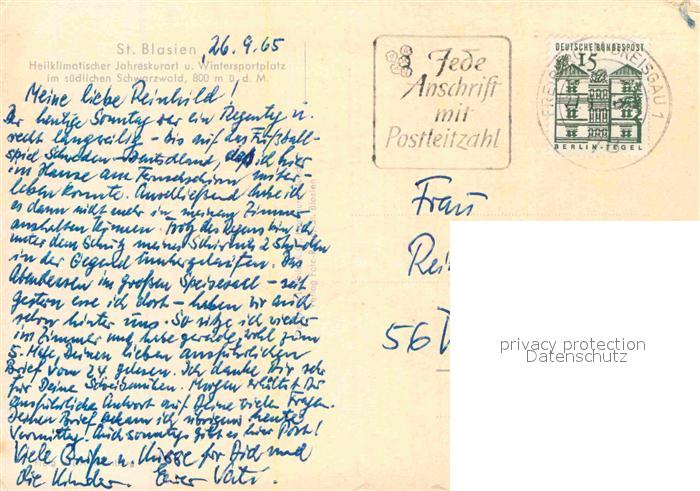 St. Blasien, 26.9.65
Heilklimatischer Jahreskurort u. Wintersportplatz
im südlichen Schwarzwald, 800 m ü. d. M.
Meine liebe Reinhild!
Der heutige Sonntag war ein Regentag u.
recht langweilig - bis auf das Fußball-
spiel Schweden-Deutschland, das ich hier
im Hause am Fernsehschirm miter-
leben konnte. Anschließend habe ich
es dann nicht mehr in meinem Zimmer
aushalten können. Trotz des Regens bin ich
unter dem Schutz meines Schirmes 2 Stunden
in der Gegend umhergelaufen. Das
Abendessen im großen Speisesaal - seit
gestern esse ich dort - haben wir auch
schon hinter uns. So sitze ich wieder
im Zimmer und habe gerade, wohl zum
5. Male, Deinen lieben ausführlichen
Brief vom 24. gelesen. Ich danke Dir sehr
für Deine Schreiben. Morgen erhältst Du
ausführliche Antwort auf Deine vielen Fragen.
Deinen Brief bekam ich übrigens heute
Vormittag. Auch sonntags gibt es hier Post!
Viele Grüße u. Küsse für Dich und
die Kinder. Euer Vati.
Jede
Anschrift
mit
Postleitzahl
DEUTSCHE BUNDESPOST
15
BERLIN-TEGEL
BREISGAU 1
Frau
Rei
56
privacy protection
Datenschutz